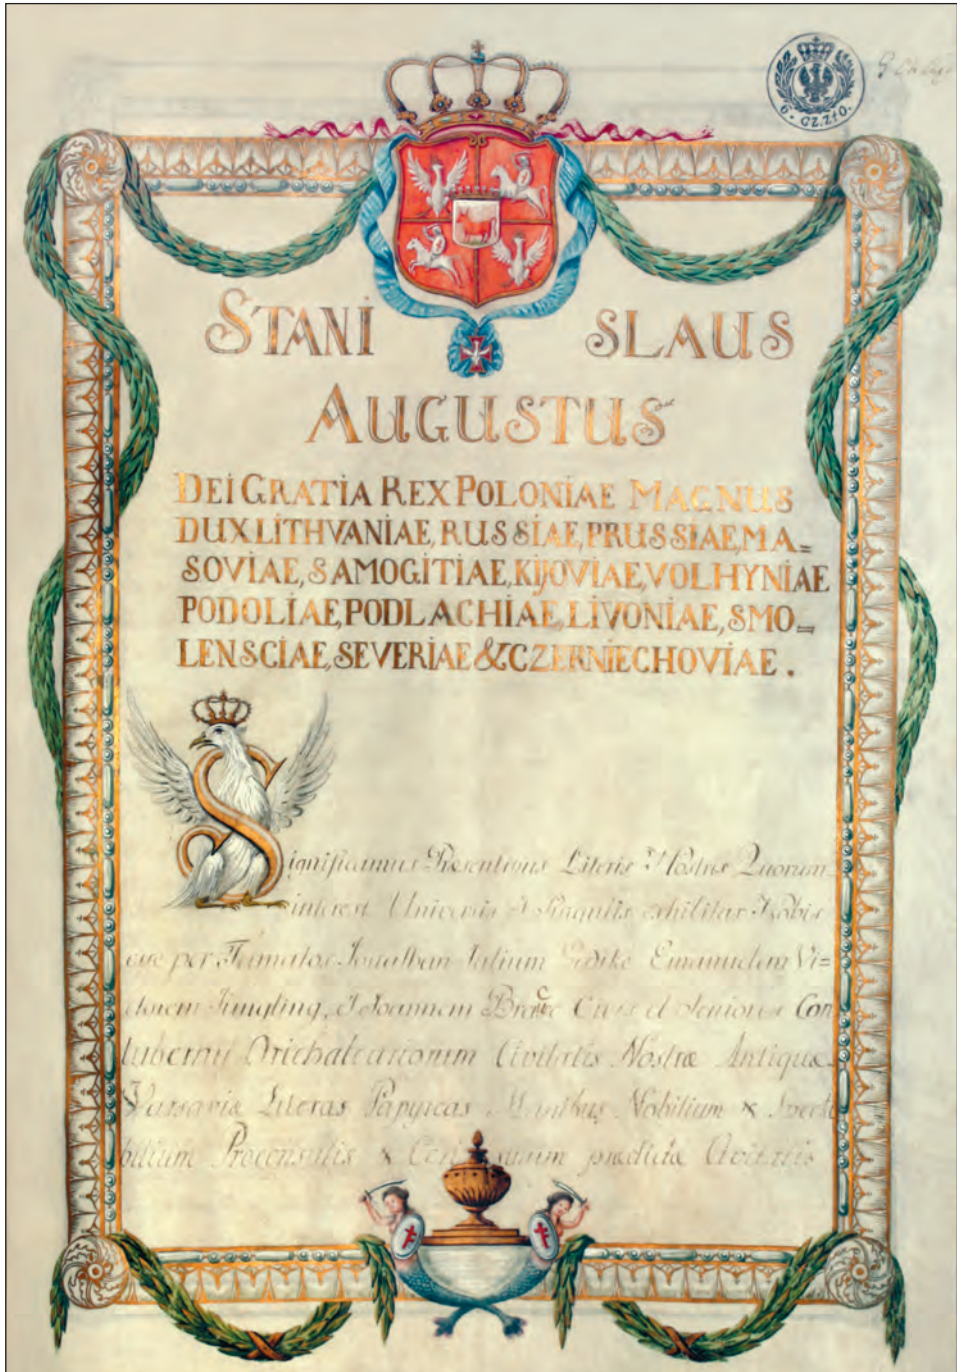 6 · CZ.ZŁO.
STANI SLAUS
AUGUSTUS
DEI GRATIA REX POLONIAE MAGNUS
DUX LITHVANIAE, RUSSIAE, PRUSSIAE, MA=
SOVIAE, SAMOGITIAE, KIJOVIAE, VOLHYNIAE
PODOLIAE, PODLACHIAE, LIVONIAE, SMO=
LENSCIAE, SEVERIAE & CZERNIECHOVIAE.
Significamus Præsentibus Literis Nostris Quorum
interest Universis et Singulis exhibitas Nobis
esse per Famatos Jonathan Julium Emanuelem Vi=
Jüngling, et Joannem Cives et Seniores Con
tubernii Orichalcariorum Civitatis Nostræ Antiquæ
Varsaviæ Literas Papyreas Manibus Nobilium &
Proconsulis & prædictæ Civitatis